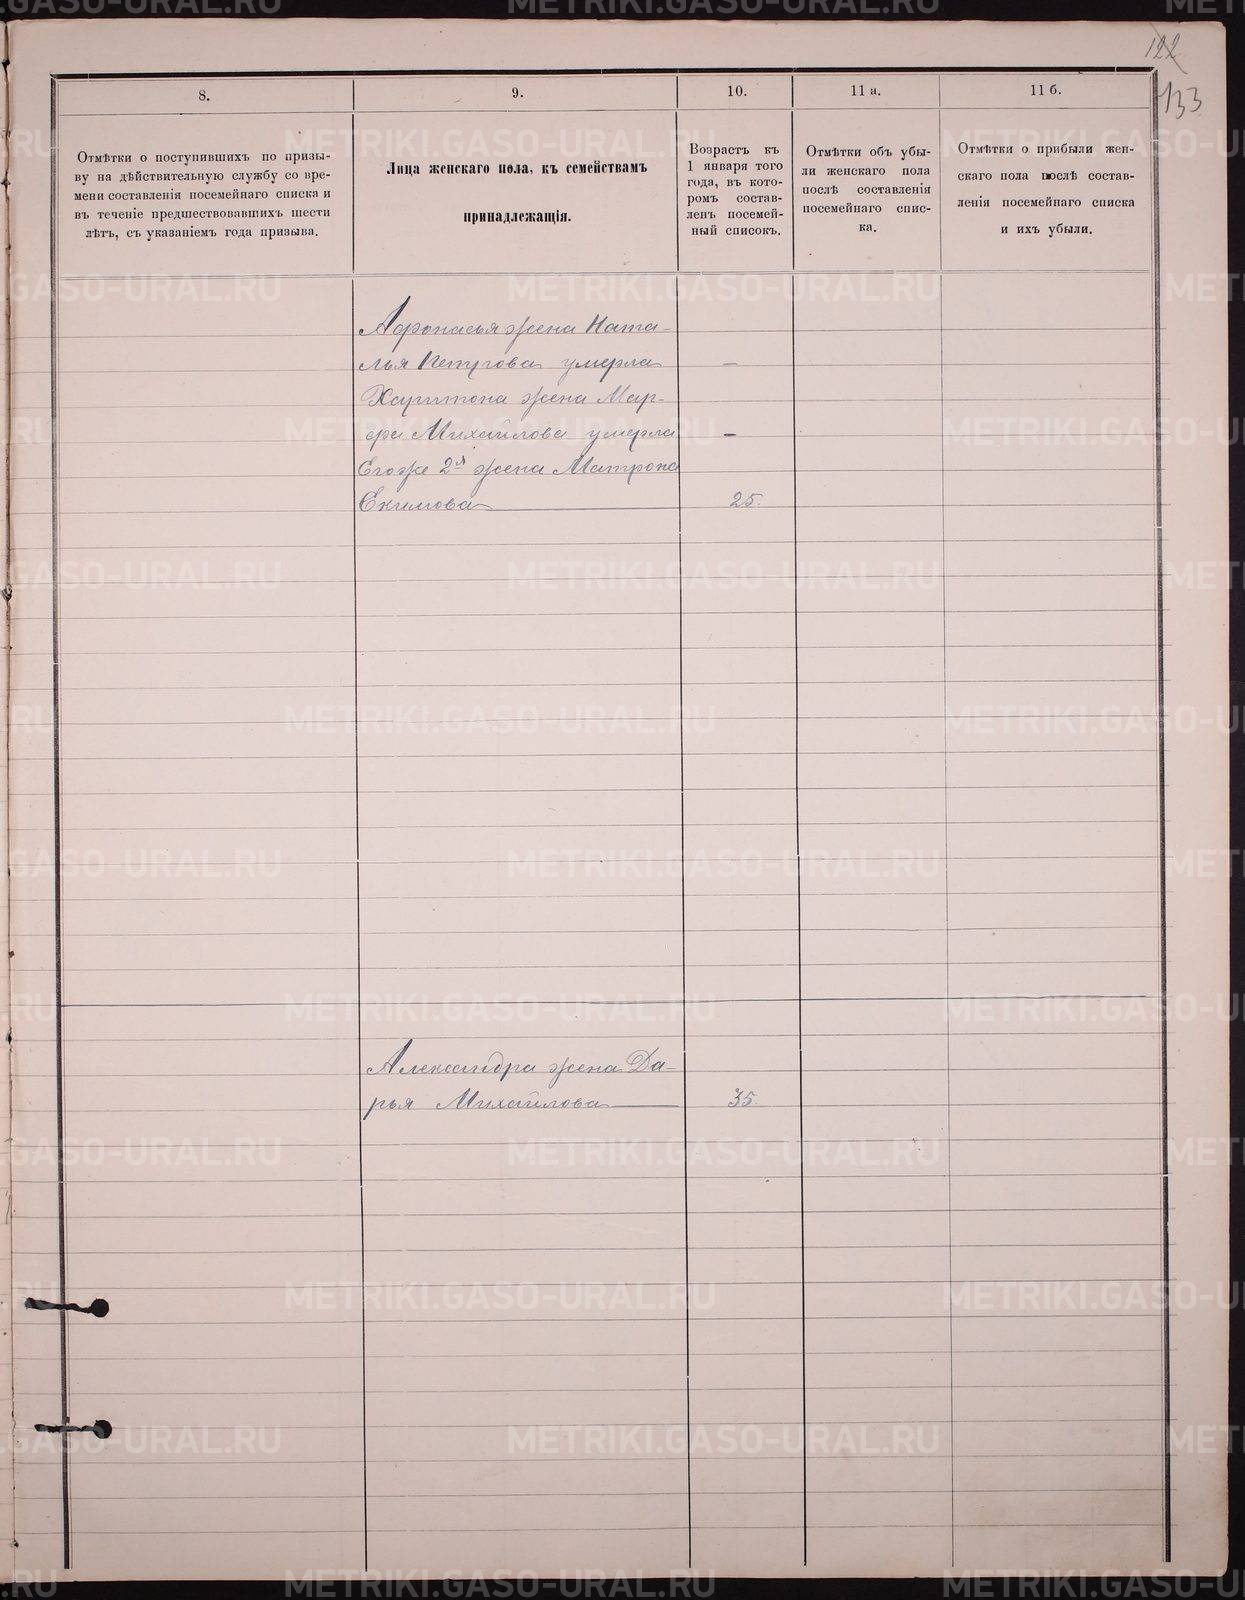 122
133
8.
9.
10.
11 а.
11 б.
Отмѣтки о поступившихъ по призы-
ву на дѣйствительную службу со вре-
мени составленія посемейнаго списка и
въ теченіе предшествовавшихъ шести
лѣтъ, съ указаніемъ года призыва.
Лица женскаго пола, къ семействамъ
принадлежащія.
Возрастъ къ
1 января того
года, въ кото-
ромъ состав-
ленъ посемей-
ный списокъ.
Отмѣтки объ убы-
ли женскаго пола
послѣ составленія
посемейнаго спис-
ка.
Отмѣтки о прибыли жен-
скаго пола послѣ состав-
ленія посемейнаго списка
и ихъ убыли.
Афонасья жена Ната-
лья Петрова умерла –
Харитона жена Мар-
фа Михайлова умерла –
Егоже 2я жена Матрона
Екимова 25.
Александра жена Да-
рья Михайлова 35.
METRIKI.GASO-URAL.RU